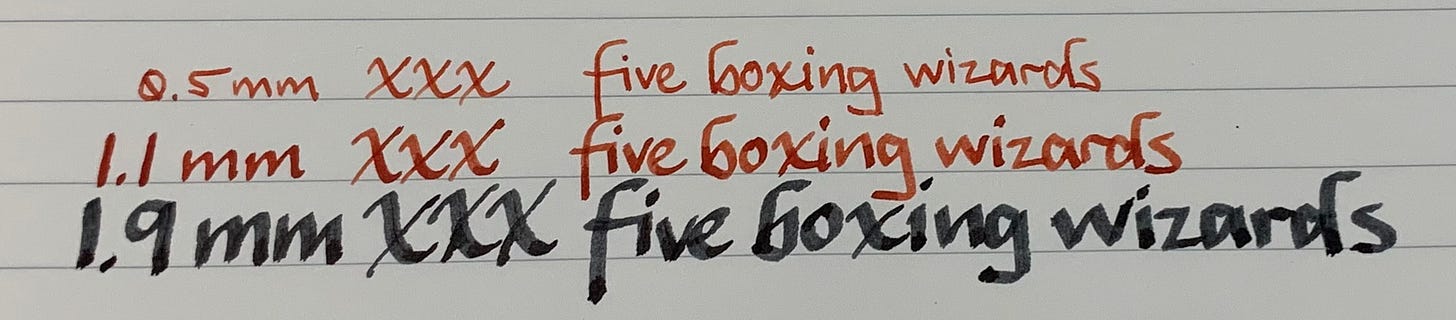 0.5mm xxx five boxing wizards
1.1 mm xxx five boxing wizards
1.9 mm xxx five boxing wizards